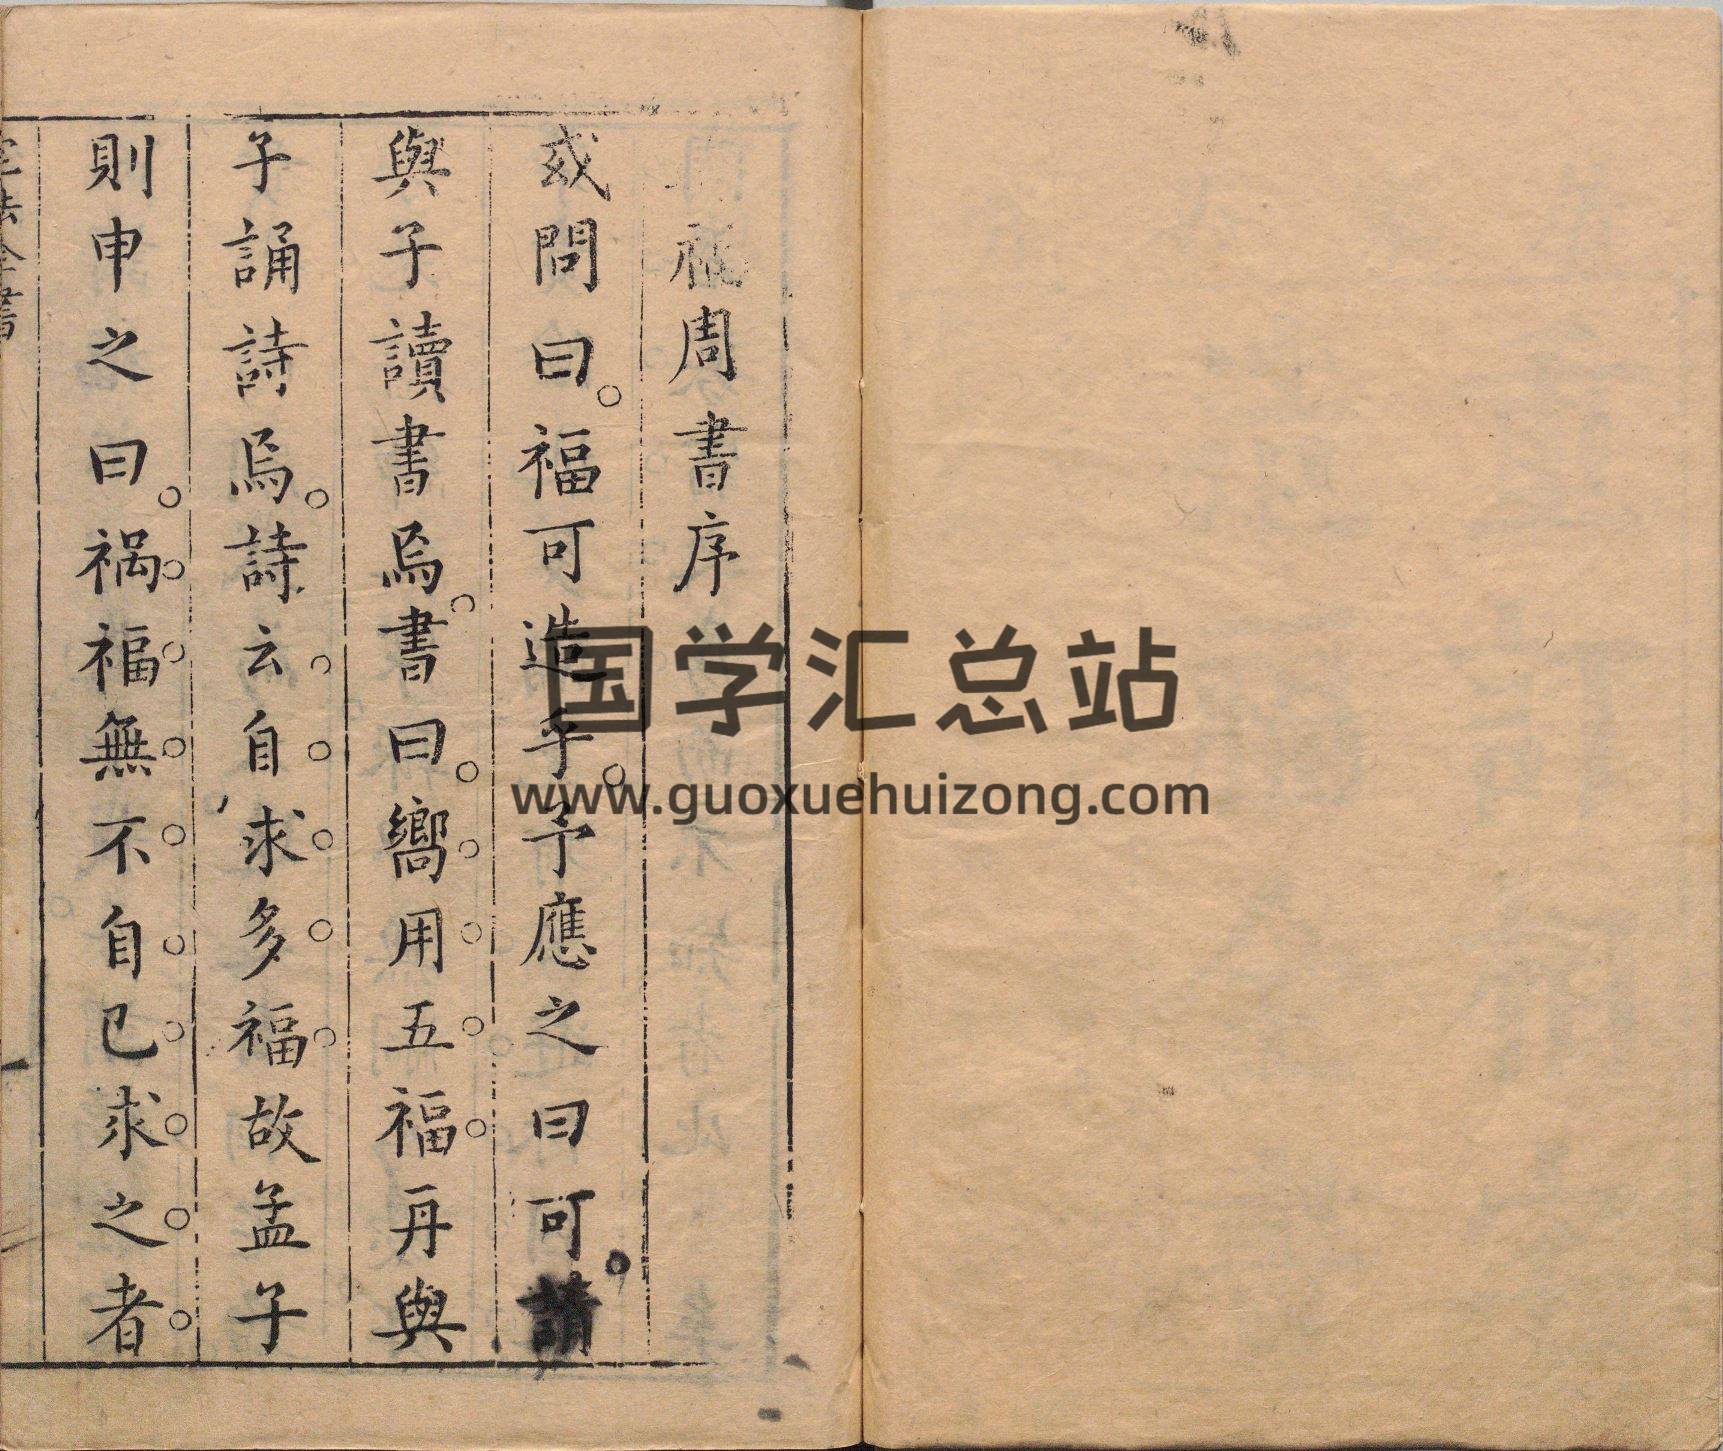 福周書序
或問曰。福可造乎。予應之曰可。請
與子讀書焉。書曰。嚮用五福再與
子誦詩焉。詩云自求多福故孟子
則申之曰。禍福無不自己求之者
全書
国学汇总站
www.guoxuehuizong.com